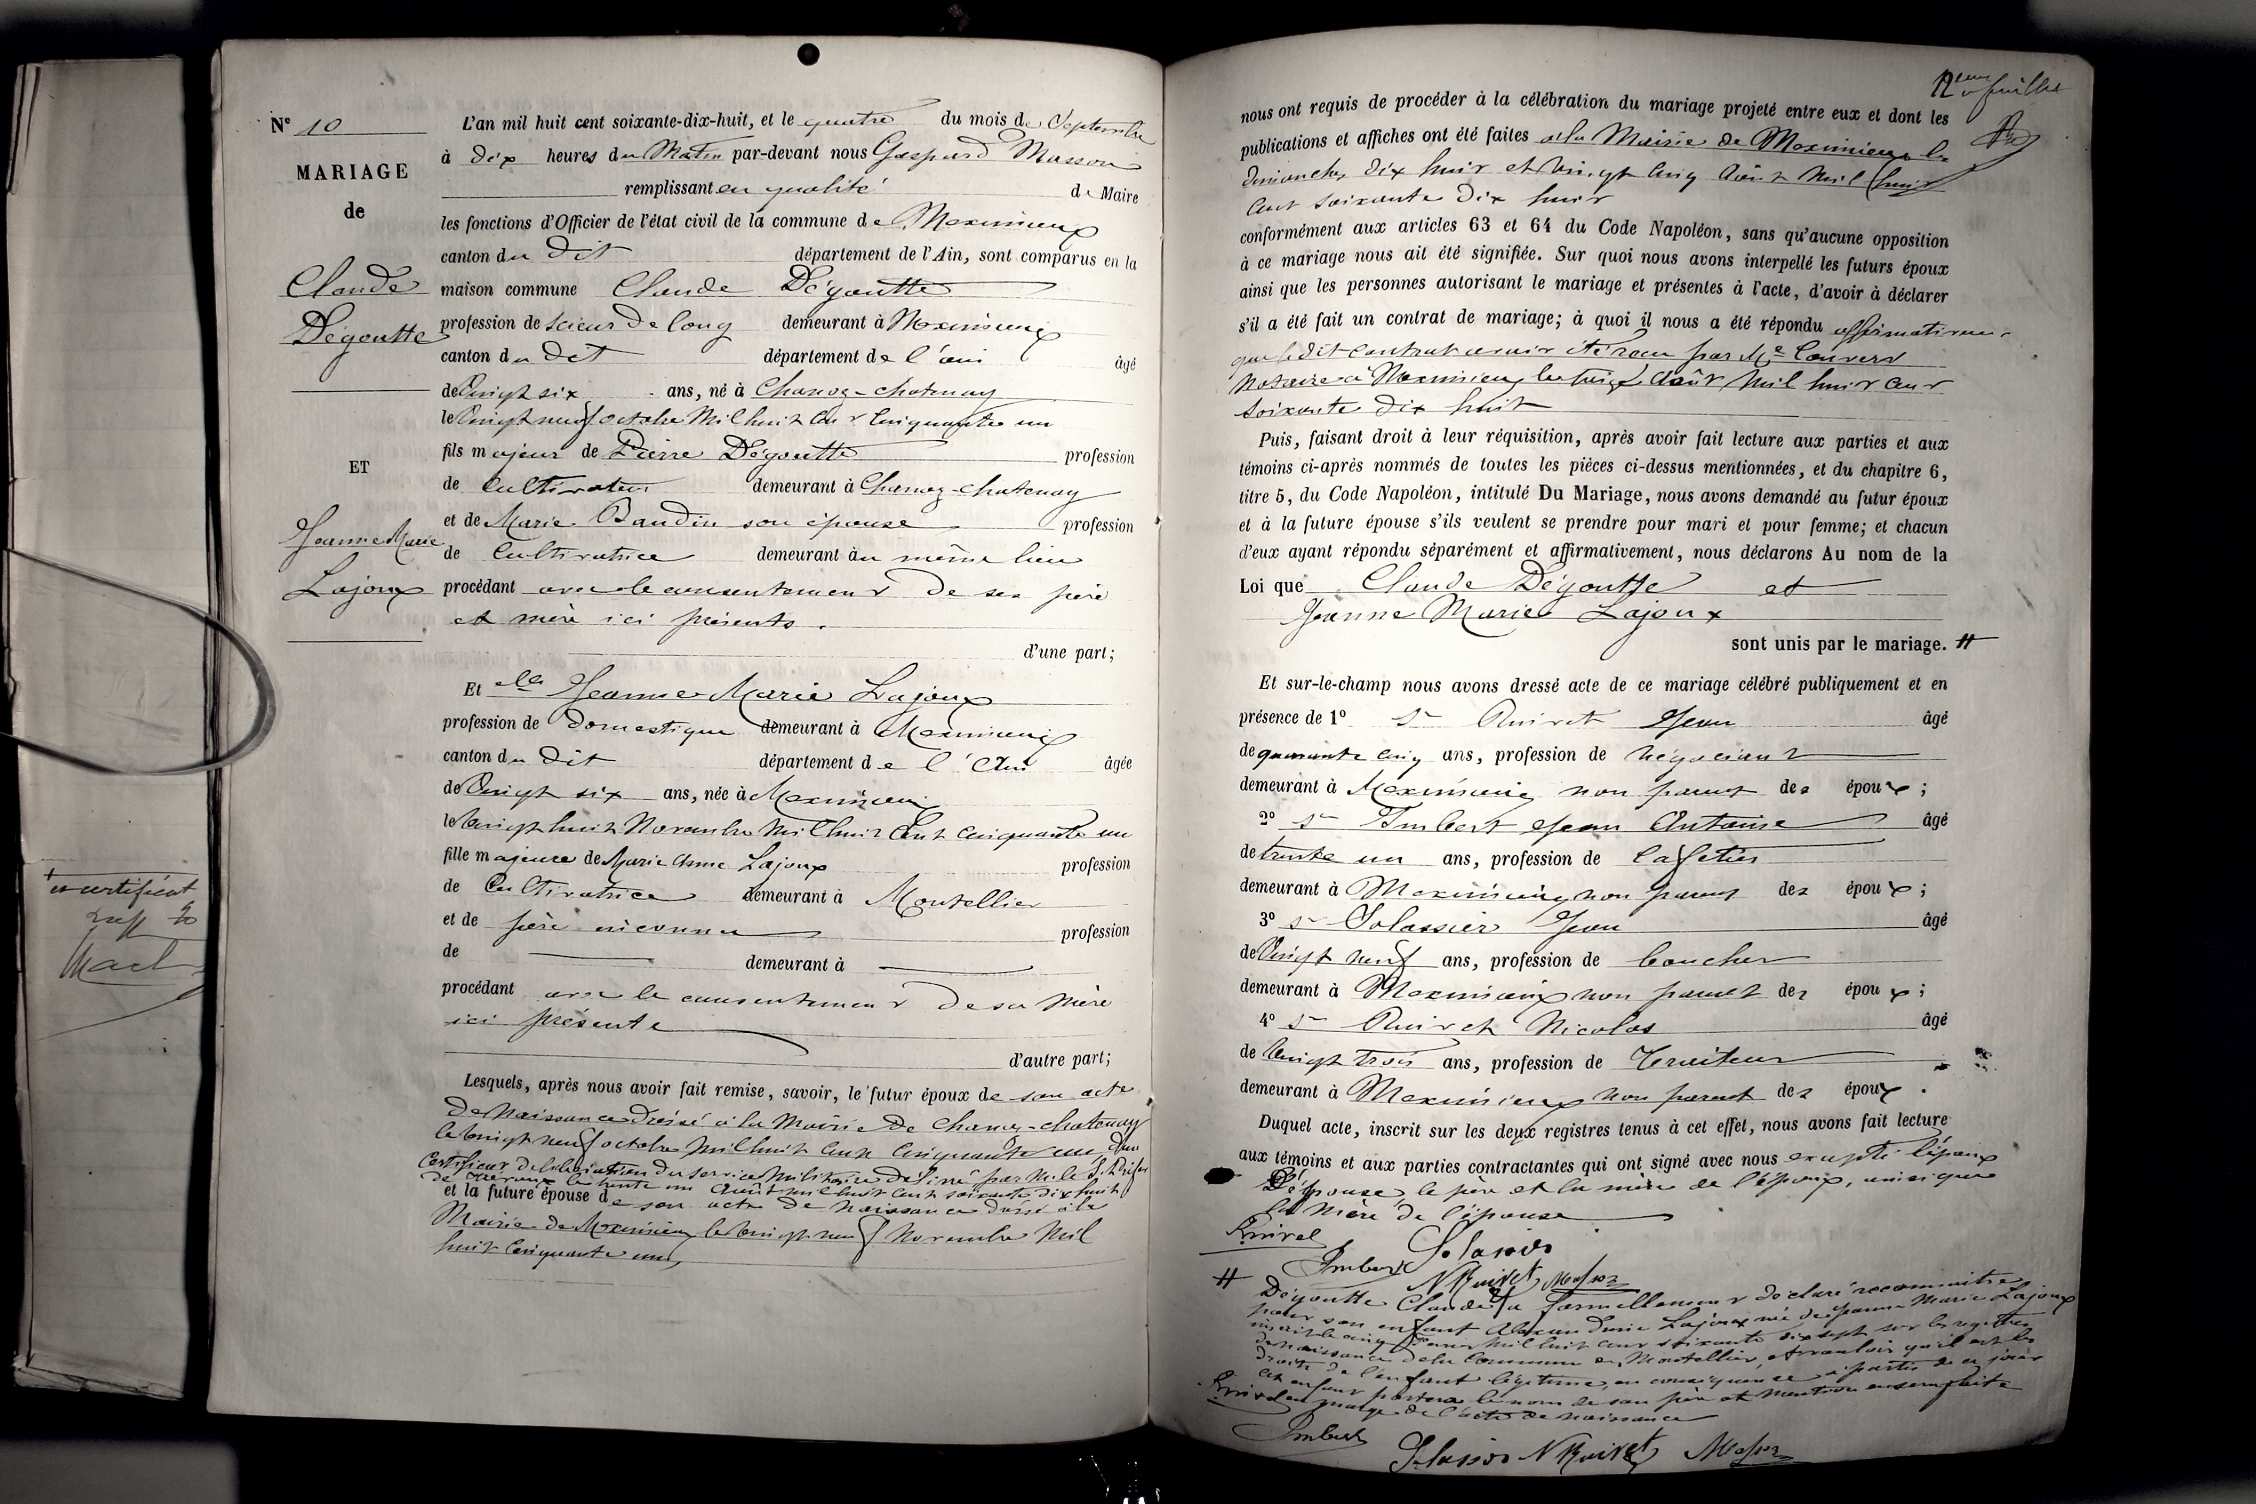 N° 10
MARIAGE
de
Claude
Dégoutte
ET
Jeanne Marie
Lajoux
L'an mil huit cent soixante-dix-huit, et le quatre du mois de Septembre
à dix heures du Matin par-devant nous Gaspard Masson
remplissant en qualité de Maire
les fonctions d'Officier de l'état civil de la commune de Meximieux
canton du dit département de l'Ain, sont comparus en la
maison commune Claude Dégoutte
profession de Scieur de long demeurant à Meximieux
canton du dit département de l'ain âgé
de Vingt six ans, né à Chanoz-chatenay
le Vingt neuf octobre Mil huit Cent Cinquante un
fils majeur de Pierre Dégoutte profession
de Cultivateur demeurant à Chanoz-chatenay
et de Marie Baudin son épouse profession
de Cultivatrice demeurant au même lieu
procédant avec le consentement de ses père
et mère ici présents.
d'une part;
Et elle Jeanne Marie Lajoux
profession de domestique demeurant à Meximieux
canton du dit département de l'Ain âgée
de Vingt six ans, née à Meximieux
le Vingt huit Novembre Mil huit Cent cinquante un
fille majeure de Marie Anne Lajoux profession
de Cultivatrice demeurant à Montellier
et de père inconnu profession
de demeurant à
procédant avec le consentement de sa Mère
ici présente
d'autre part;
Lesquels, après nous avoir fait remise, savoir, le futur époux de son acte
de Naissance dressé à la Mairie de Chanoz-chatenay
le Vingt neuf octobre Mil huit Cent Cinquante un, d'un
Certificat de libération du service Militaire délivré par Mr le S. Préfet
de Trévoux le trente un Août mil huit cent soixante dix huit
et la future épouse de son acte de naissance dressé à la
Mairie de Meximieux le Vingt neuf Novembre Mil
huit Cinquante un,
+ certificat
12eme feuillet
nous ont requis de procéder à la célébration du mariage projeté entre eux et dont les
publications et affiches ont été faites à la Mairie de Meximieux le
dimanche dix huit et Vingt Cinq Août Mil huit
Cent soixante dix huit
conformément aux articles 63 et 64 du Code Napoléon, sans qu'aucune opposition
à ce mariage nous ait été signifiée. Sur quoi nous avons interpellé les futurs époux
ainsi que les personnes autorisant le mariage et présentes à l'acte, d'avoir à déclarer
s'il a été fait un contrat de mariage; à quoi il nous a été répondu affirmativement
que le dit contrat avait été reçu par Me Convers
Notaire à Meximieux le Août Mil huit Cent
Soixante dix huit
Puis, faisant droit à leur réquisition, après avoir fait lecture aux parties et aux
témoins ci-après nommés de toutes les pièces ci-dessus mentionnées, et du chapitre 6,
titre 5, du Code Napoléon, intitulé Du Mariage, nous avons demandé au futur époux
et à la future épouse s'ils veulent se prendre pour mari et pour femme; et chacun
d'eux ayant répondu séparément et affirmativement, nous déclarons Au nom de la
Loi que Claude Dégoutte et
Jeanne Marie Lajoux
sont unis par le mariage. #
Et sur-le-champ nous avons dressé acte de ce mariage célébré publiquement et en
présence de 1° Sr Ruivet Jean âgé
de quarante cinq ans, profession de Négociant
demeurant à Meximieux non parent des époux;
2° Sr Imbert Jean Antoine âgé
de trente un ans, profession de Cafetier
demeurant à Meximieux non parent des époux;
3° Sr Solassier Jean âgé
de Vingt neuf ans, profession de boucher
demeurant à Meximieux non parent des époux;
4° Sr Ruivet Nicolas âgé
de Vingt trois ans, profession de Traiteur
demeurant à Meximieux non parent des époux.
Duquel acte, inscrit sur les deux registres tenus à cet effet, nous avons fait lecture
aux témoins et aux parties contractantes qui ont signé avec nous excepté l'époux
l'épouse, le père et la mère de l'époux, ainsi que
la Mère de l'épouse
Ruivet
Imbert Solassier
N Ruivet Masson
# Dégoutte Claude a formellement déclaré reconnaitre
pour son enfant Lajoux née de Jeanne Marie Lajoux
inscrit le cinq mil huit cent soixante dix sept sur les registres
de naissance de la Commune de Montellier, et vouloir qu'il ait les
droits de l'enfant légitime, en conséquence à partir de ce jour
cet enfant portera le nom de son père et mention en sera faite
en marge de l'acte de naissance
Ruivet
Imbert
Solassier N Ruivet Masson